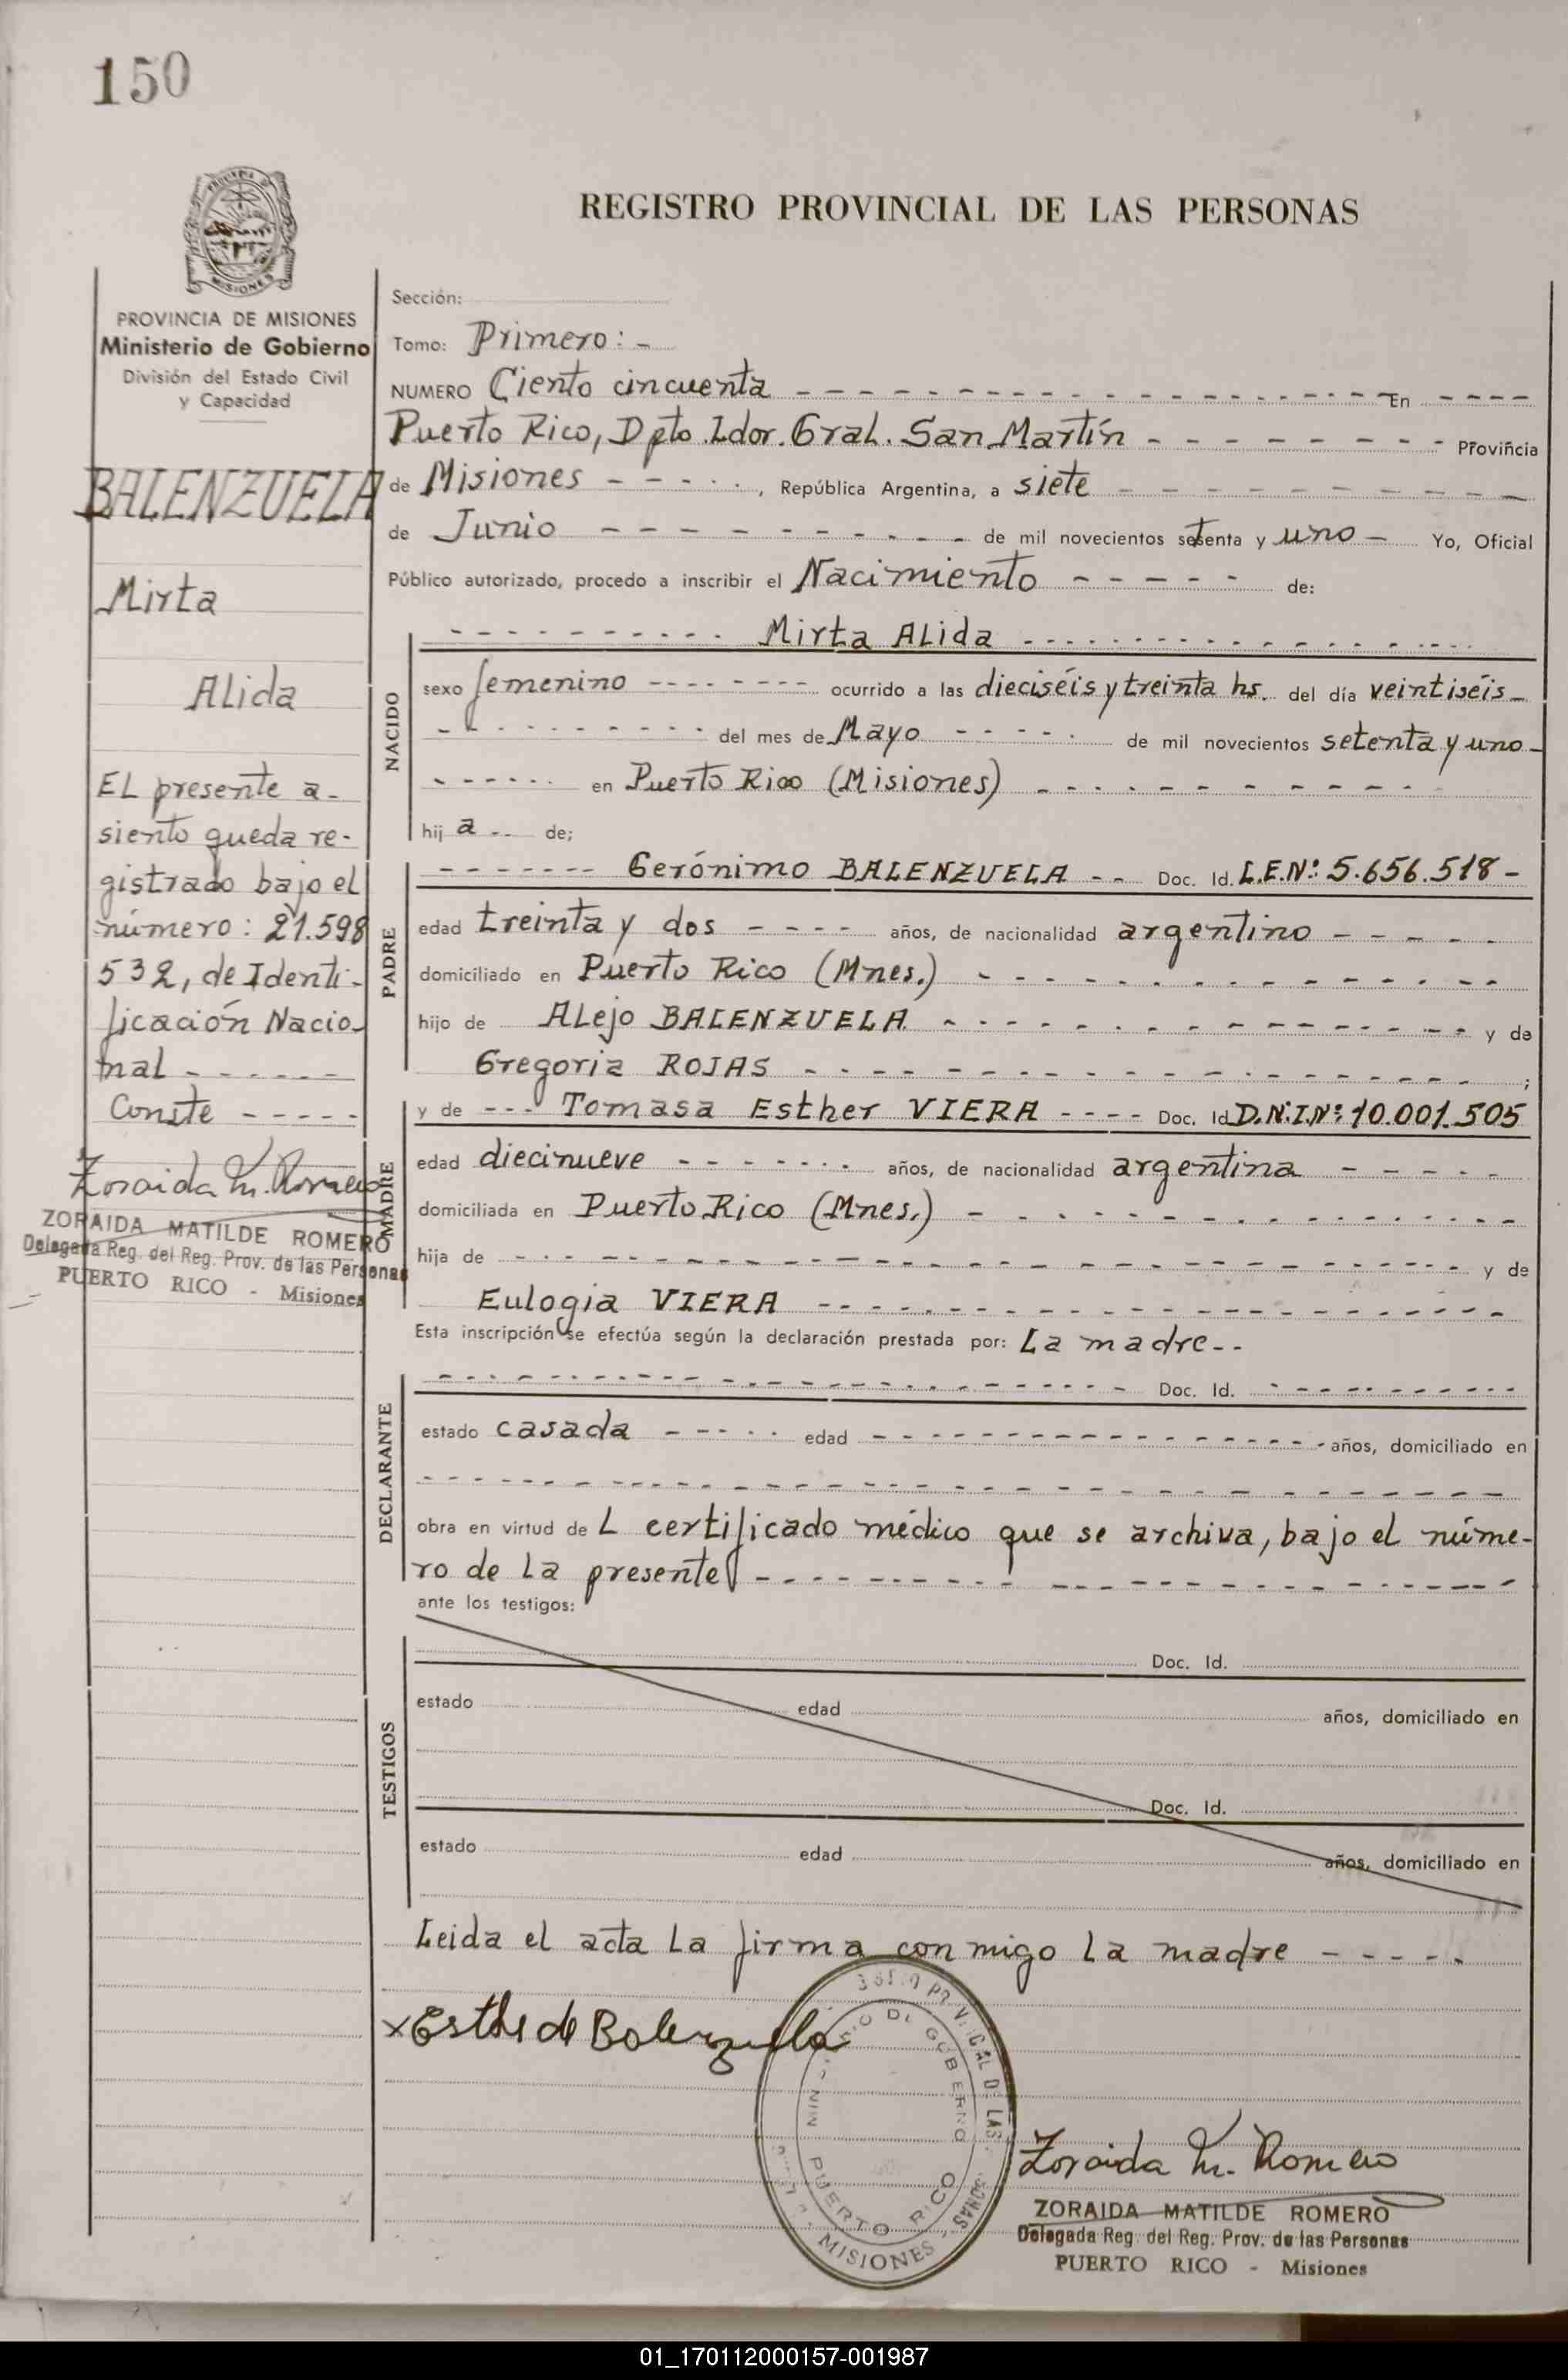 150
MISIONES
PROVINCIA DE MISIONES
Ministerio de Gobierno
División del Estado Civil
y Capacidad
BALENZUELA
Mirta
Alida
EL presente a-
siento queda re-
gistrado bajo el
número: 21.598
532, de Identi-
ficación Nacio-
nal - - - - - -
Conste - - - - -
Zoraida M. Romero
ZORAIDA MATILDE ROMERO
Delegada Reg. del Reg. Prov. de las Personas
PUERTO RICO - Misiones
REGISTRO PROVINCIAL DE LAS PERSONAS
Sección:
Tomo: Primero: -
NUMERO Ciento cincuenta - - - - En - - - -
Puerto Rico, Dpto. Ldor. Gral. San Martín - - - - Provincia
de Misiones - - - - , República Argentina, a siete - - - -
de Junio - - - - de mil novecientos setenta y uno - Yo, Oficial
Público autorizado, procedo a inscribir el Nacimiento - - - - - de:
NACIDO
- - - - Mirta ALida - - - -
sexo femenino - - - - ocurrido a las dieciséis y treinta hs. del día veintiséis -
- - - - del mes de Mayo - - - - de mil novecientos setenta y uno -
- - - - en Puerto Rico (Misiones) - - - -
hij a - - de;
PADRE
- - - - Gerónimo BALENZUELA - - Doc. Id. L.E.Nº: 5.656.518 -
edad treinta y dos - - - - años, de nacionalidad argentino - - - -
domiciliado en Puerto Rico (Mnes.) - - - -
hijo de ALejo BALENZUELA - - - - y de
Gregoria ROJAS - - - - ;
MADRE
y de - - - Tomasa Esther VIERA - - - - Doc. Id D.N.I.Nº: 10.001.505
edad diecinueve - - - - años, de nacionalidad argentina - - - -
domiciliada en Puerto Rico (Mnes.) - - - -
hija de - - - - y de
Eulogia VIERA - - - -
Esta inscripción se efectúa según la declaración prestada por: La madre - -
DECLARANTE
- - - - Doc. Id. - - - -
estado casada - - - - edad - - - - años, domiciliado en
- - - -
obra en virtud de L certificado médico que se archiva, bajo el núme-
ro de La presente - - - -
ante los testigos:
TESTIGOS
Doc. Id.
estado edad años, domiciliado en
Doc. Id.
estado edad años, domiciliado en
Leida el acta La firma con migo La madre - - - - -
x Esther de Balenzuela
MINISTERIO DE GOBIERNO
PUERTO RICO
MISIONES
Zoraida M. Romero
ZORAIDA MATILDE ROMERO
Delegada Reg. del Reg. Prov. de las Personas
PUERTO RICO - Misiones
01_170112000157-001987